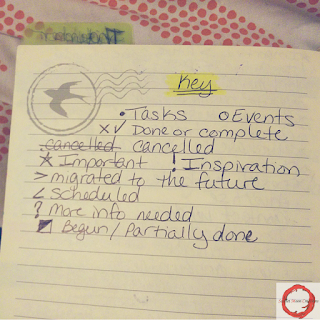 Key
• Tasks  o Events
x✓ Done or complete
cancelled cancelled
* Important ! Inspiration
> migrated to the future
< scheduled
? More info needed
◪ Begun / Partially done